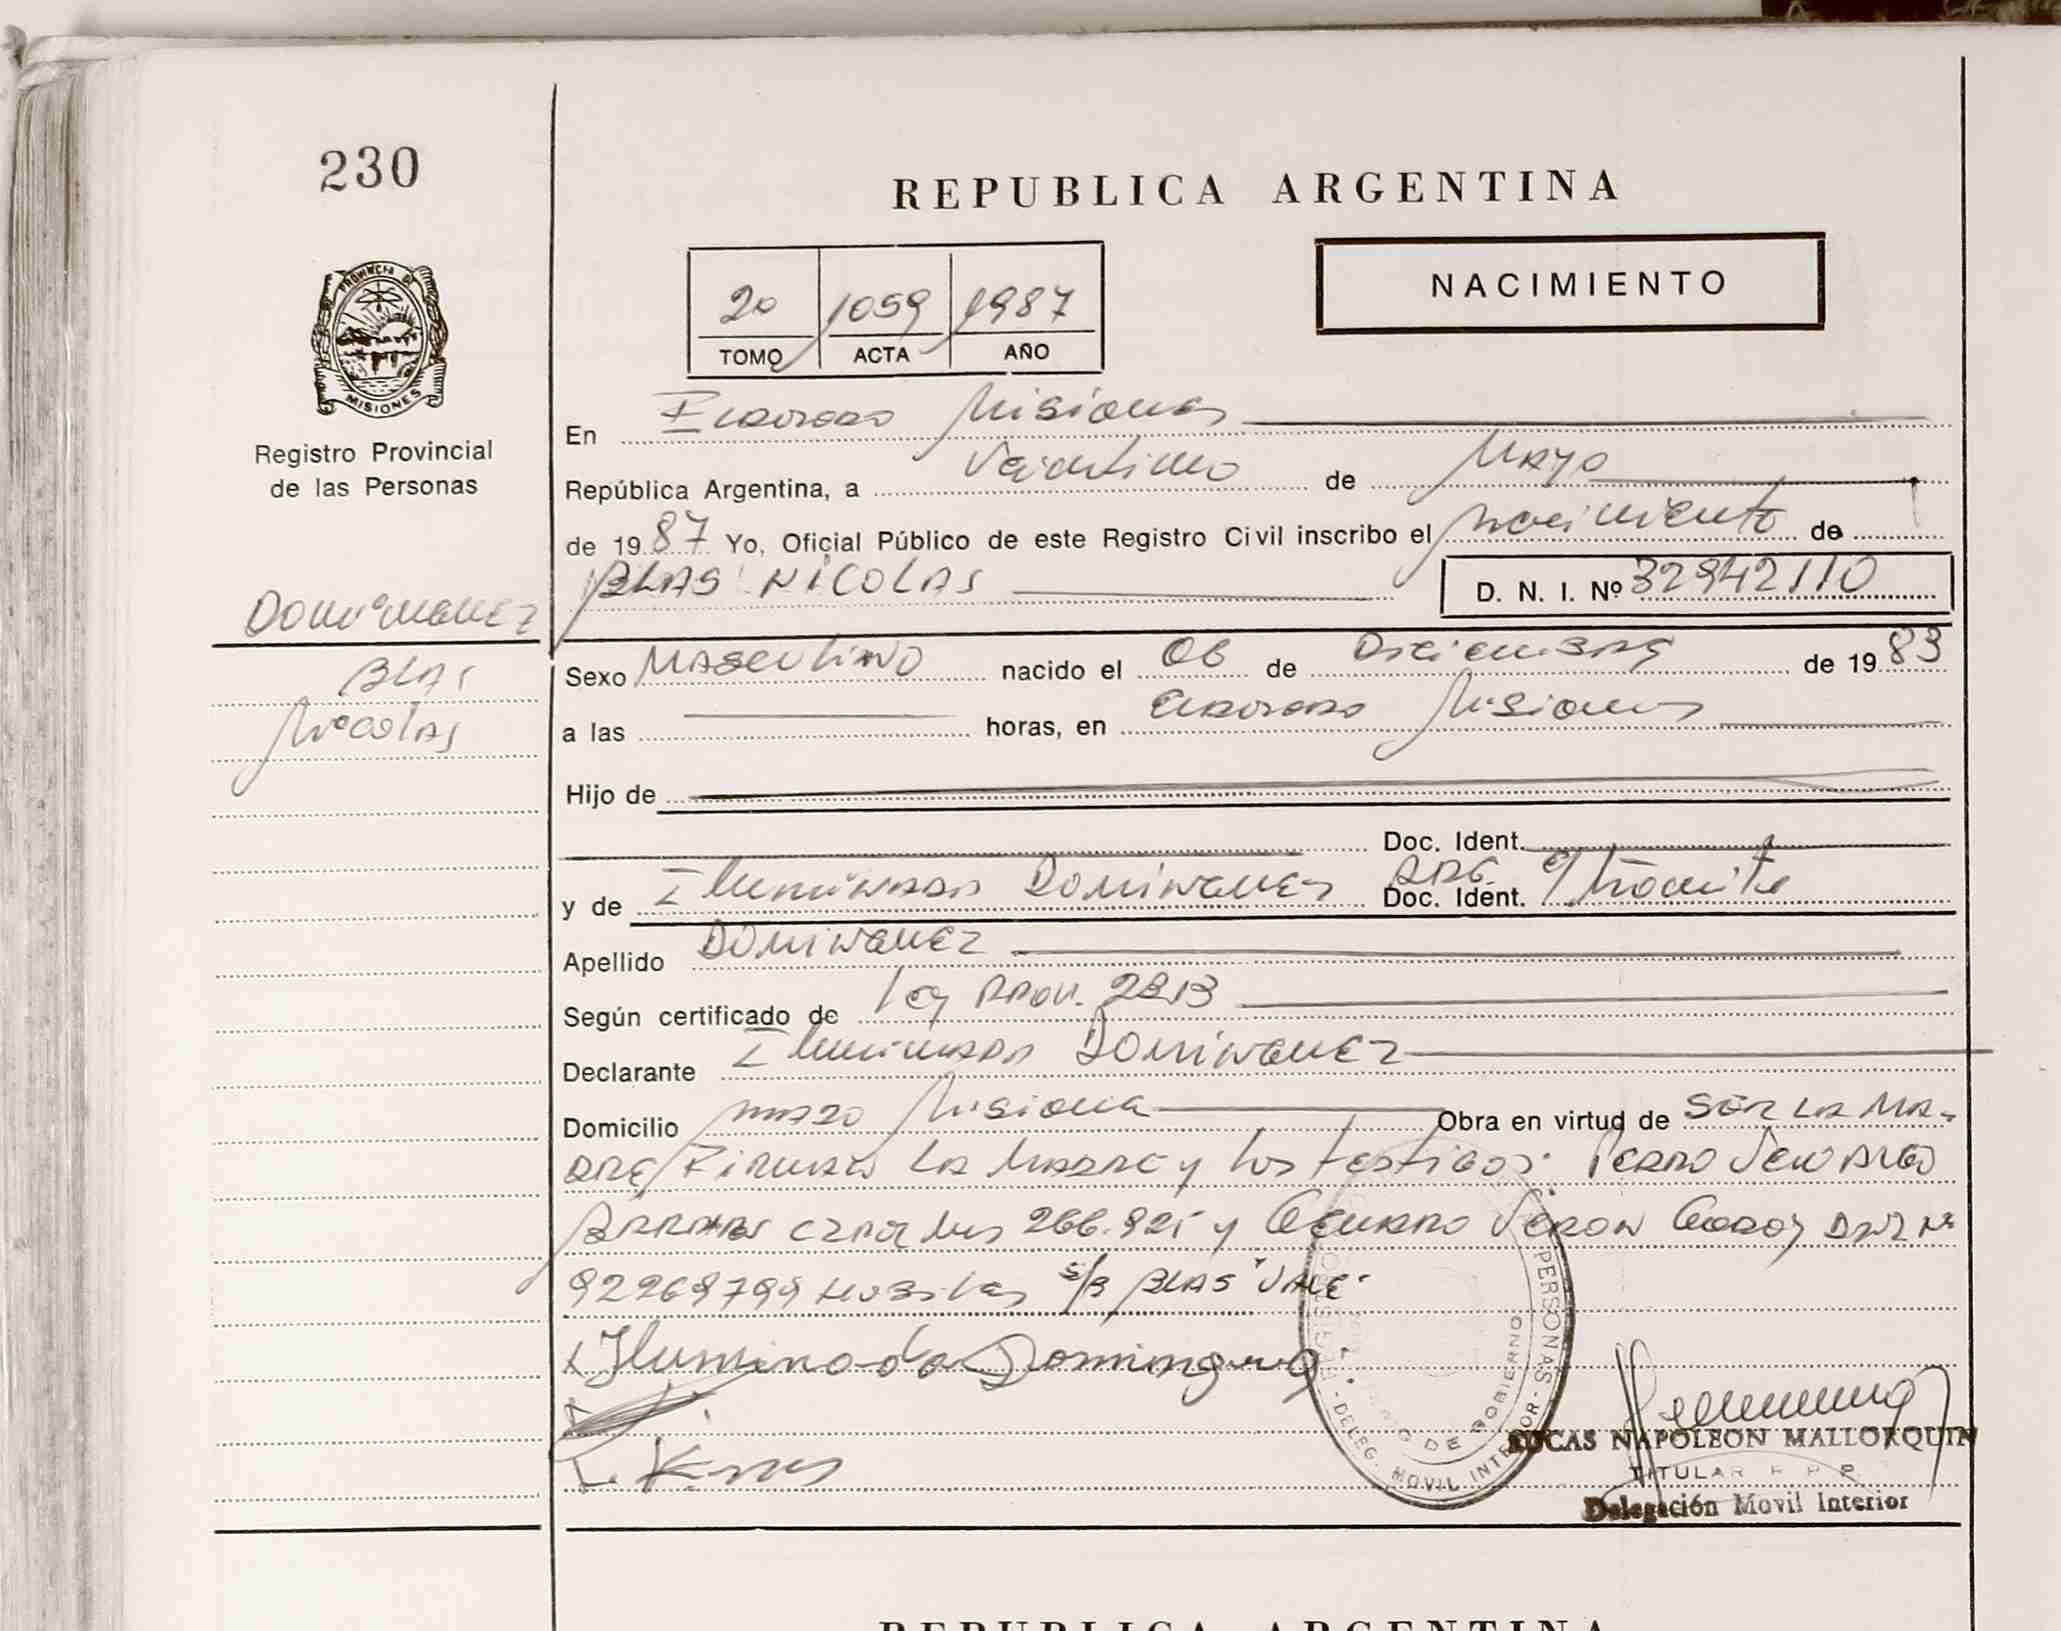 230
REPUBLICA ARGENTINA
PROVINCIA DE
MISIONES
Registro Provincial
de las Personas
20 1059 1987
TOMO ACTA AÑO
NACIMIENTO
En Eldorado Misiones
República Argentina, a Veintiuno de Mayo
de 1987 Yo, Oficial Público de este Registro Civil inscribo el nacimiento de
BLAS NICOLAS D. N. I. Nº 32942110
DOMINGUEZ
BLAS
NICOLAS
Sexo MASCULINO nacido el 06 de Diciembre de 1983
a las horas, en Eldorado Misiones
Hijo de
Doc. Ident.
y de Iluminada DOMINGUEZ ARG. Doc. Ident. e/trámite
Apellido DOMINGUEZ
Según certificado de Ley Prov. 2813
Declarante Iluminada DOMINGUEZ
Domicilio Misiones Obra en virtud de SER LA MA-
DRE/Firman la Madre y los testigos: Pedro
266.925 y Ceron Godoy DNI Nº
92269799 s/r BLAS "VALE"
Iluminada Dominguez
PERSONAS
DELEG. MOVIL INTERIOR
DE GOBIERNO
LUCAS NAPOLEON MALLORQUIN
TITULAR R P P
Delegación Movil Interior
REPUBLICA ARGENTINA